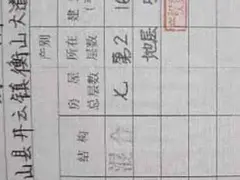 山县开云镇衡山大道
产别
结构 房屋总层数 所在层数 建
混合 七 第2 16
地层